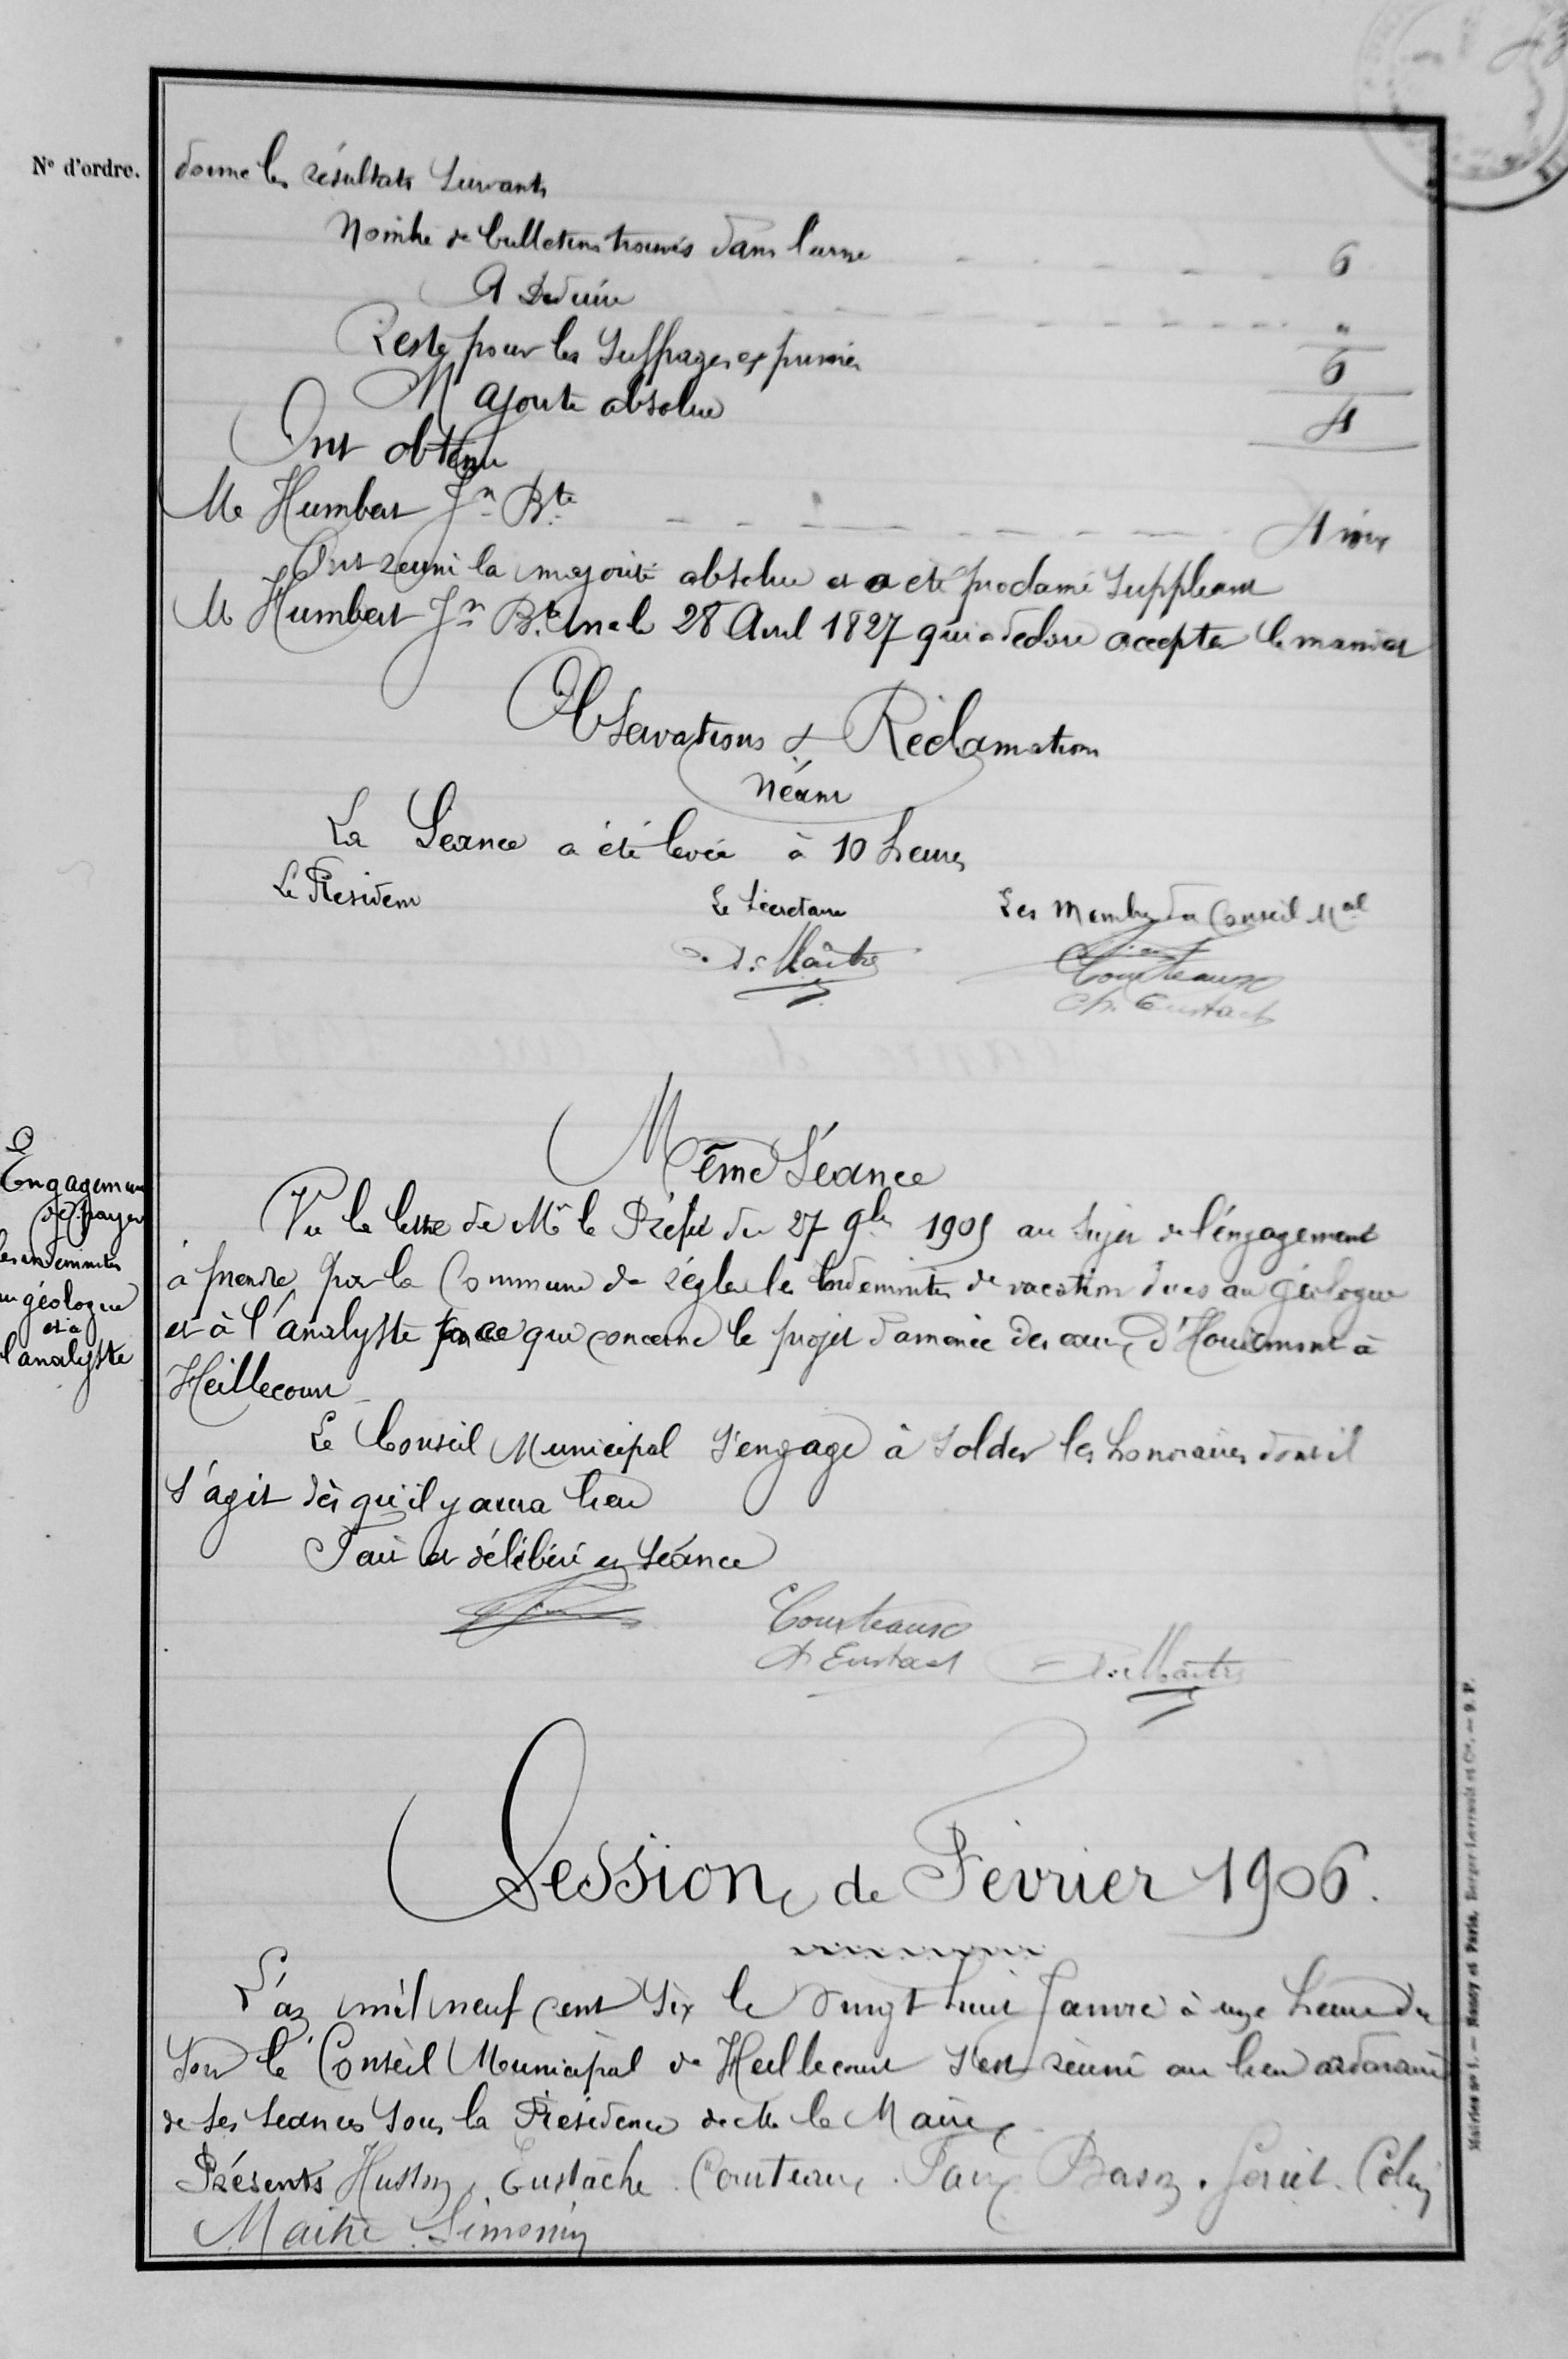 N° d'ordre.
donne les résultats suivants
Nombre de bulletins trouvés dans l'urne 6
A déduire "
Reste pour les suffrages exprimés 6
Majorité absolue 4
Ont obtenu
Mr Humbert Jn Bte 4 voix
Ont réuni la majorité absolue et a été proclamé suppléant
Mr Humbert Jn Bte né le 28 Avril 1827 qui a déclaré accepter le mandat
Observations & Réclamations
Néant
La Séance a été levée à 10 heures
Le Président Le Secrétaire Les Membres du Conseil Mal
D. Maître
Courteaux
Ch. Eustach
Même Séance
Engagement
de payer
les indemnités
au géologue
et à
l'analyste
Vu la lettre de Mr le Préfet du 27 9bre 1905 au sujet de l'engagement
à prendre par la Commune de régler les indemnités de vacation dues au géologue
et à l'analyste pour ce qui concerne le projet d'amenée des eaux d'Houdemont à
Heillecourt
Le Conseil Municipal s'engage à solder les honoraires dont il
s'agit dès qu'il y aura lieu
Fait et délibéré en séance
Courteaux
Ch Eustach
Maître
Session de Février 1906.
L'an mil neuf cent six le vingt huit Janvier à une heure du
soir le Conseil Municipal de Heillecourt s'est réuni au lieu ordinaire
de ses séances sous la Présidence de Mr le Maire
Présents Husson, Eustache. Courteaux. Baron. Colin
Maitre. Simonin
Mairies n° 1. — Nancy et Paris, Berger-Levrault et Cie. — 9. P.